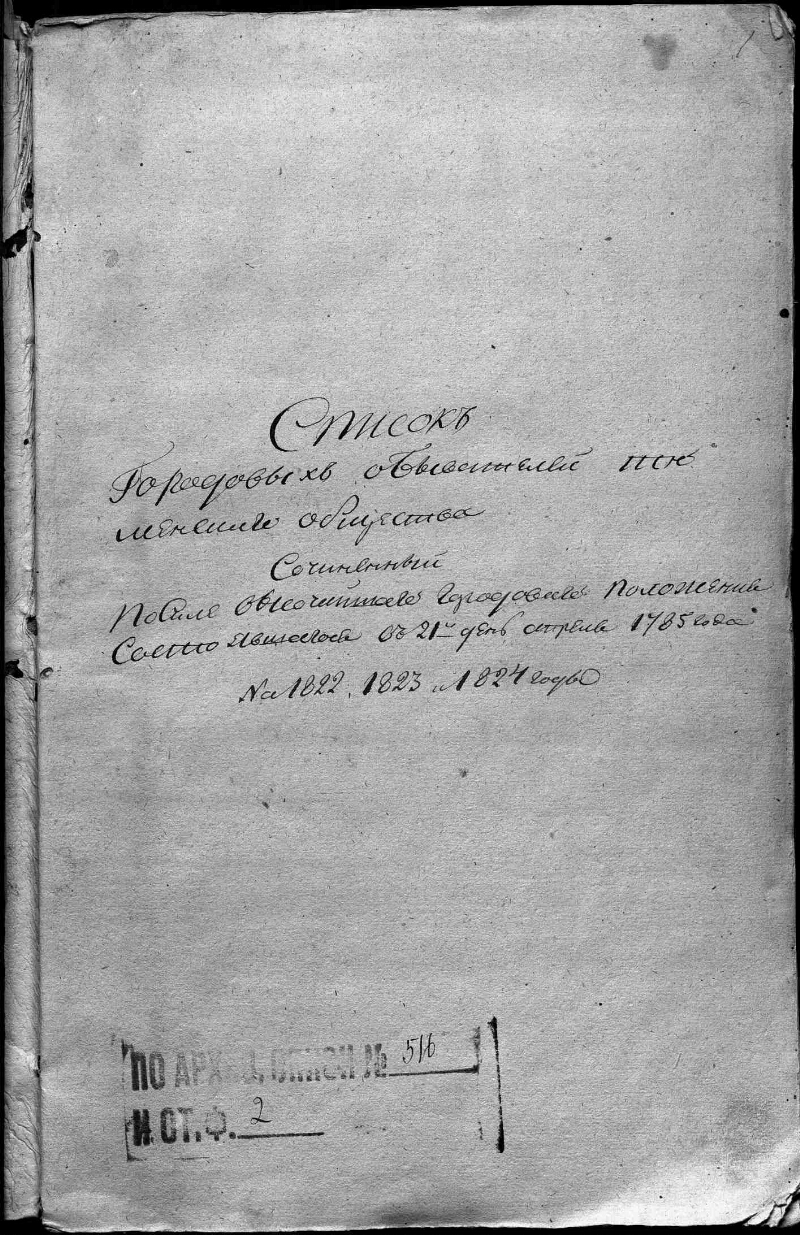 1
Списокъ
Городовыхъ обывателей тю
менскаго общества
Сочиненный
После высочайшаго Городоваго Положения
Состоявшагося въ 21й день апреля 1785 года
На 1822, 1823 и 1824 годы
ПО АРХИВ. ОПИСИ № 516
И СТ. Ф. 2